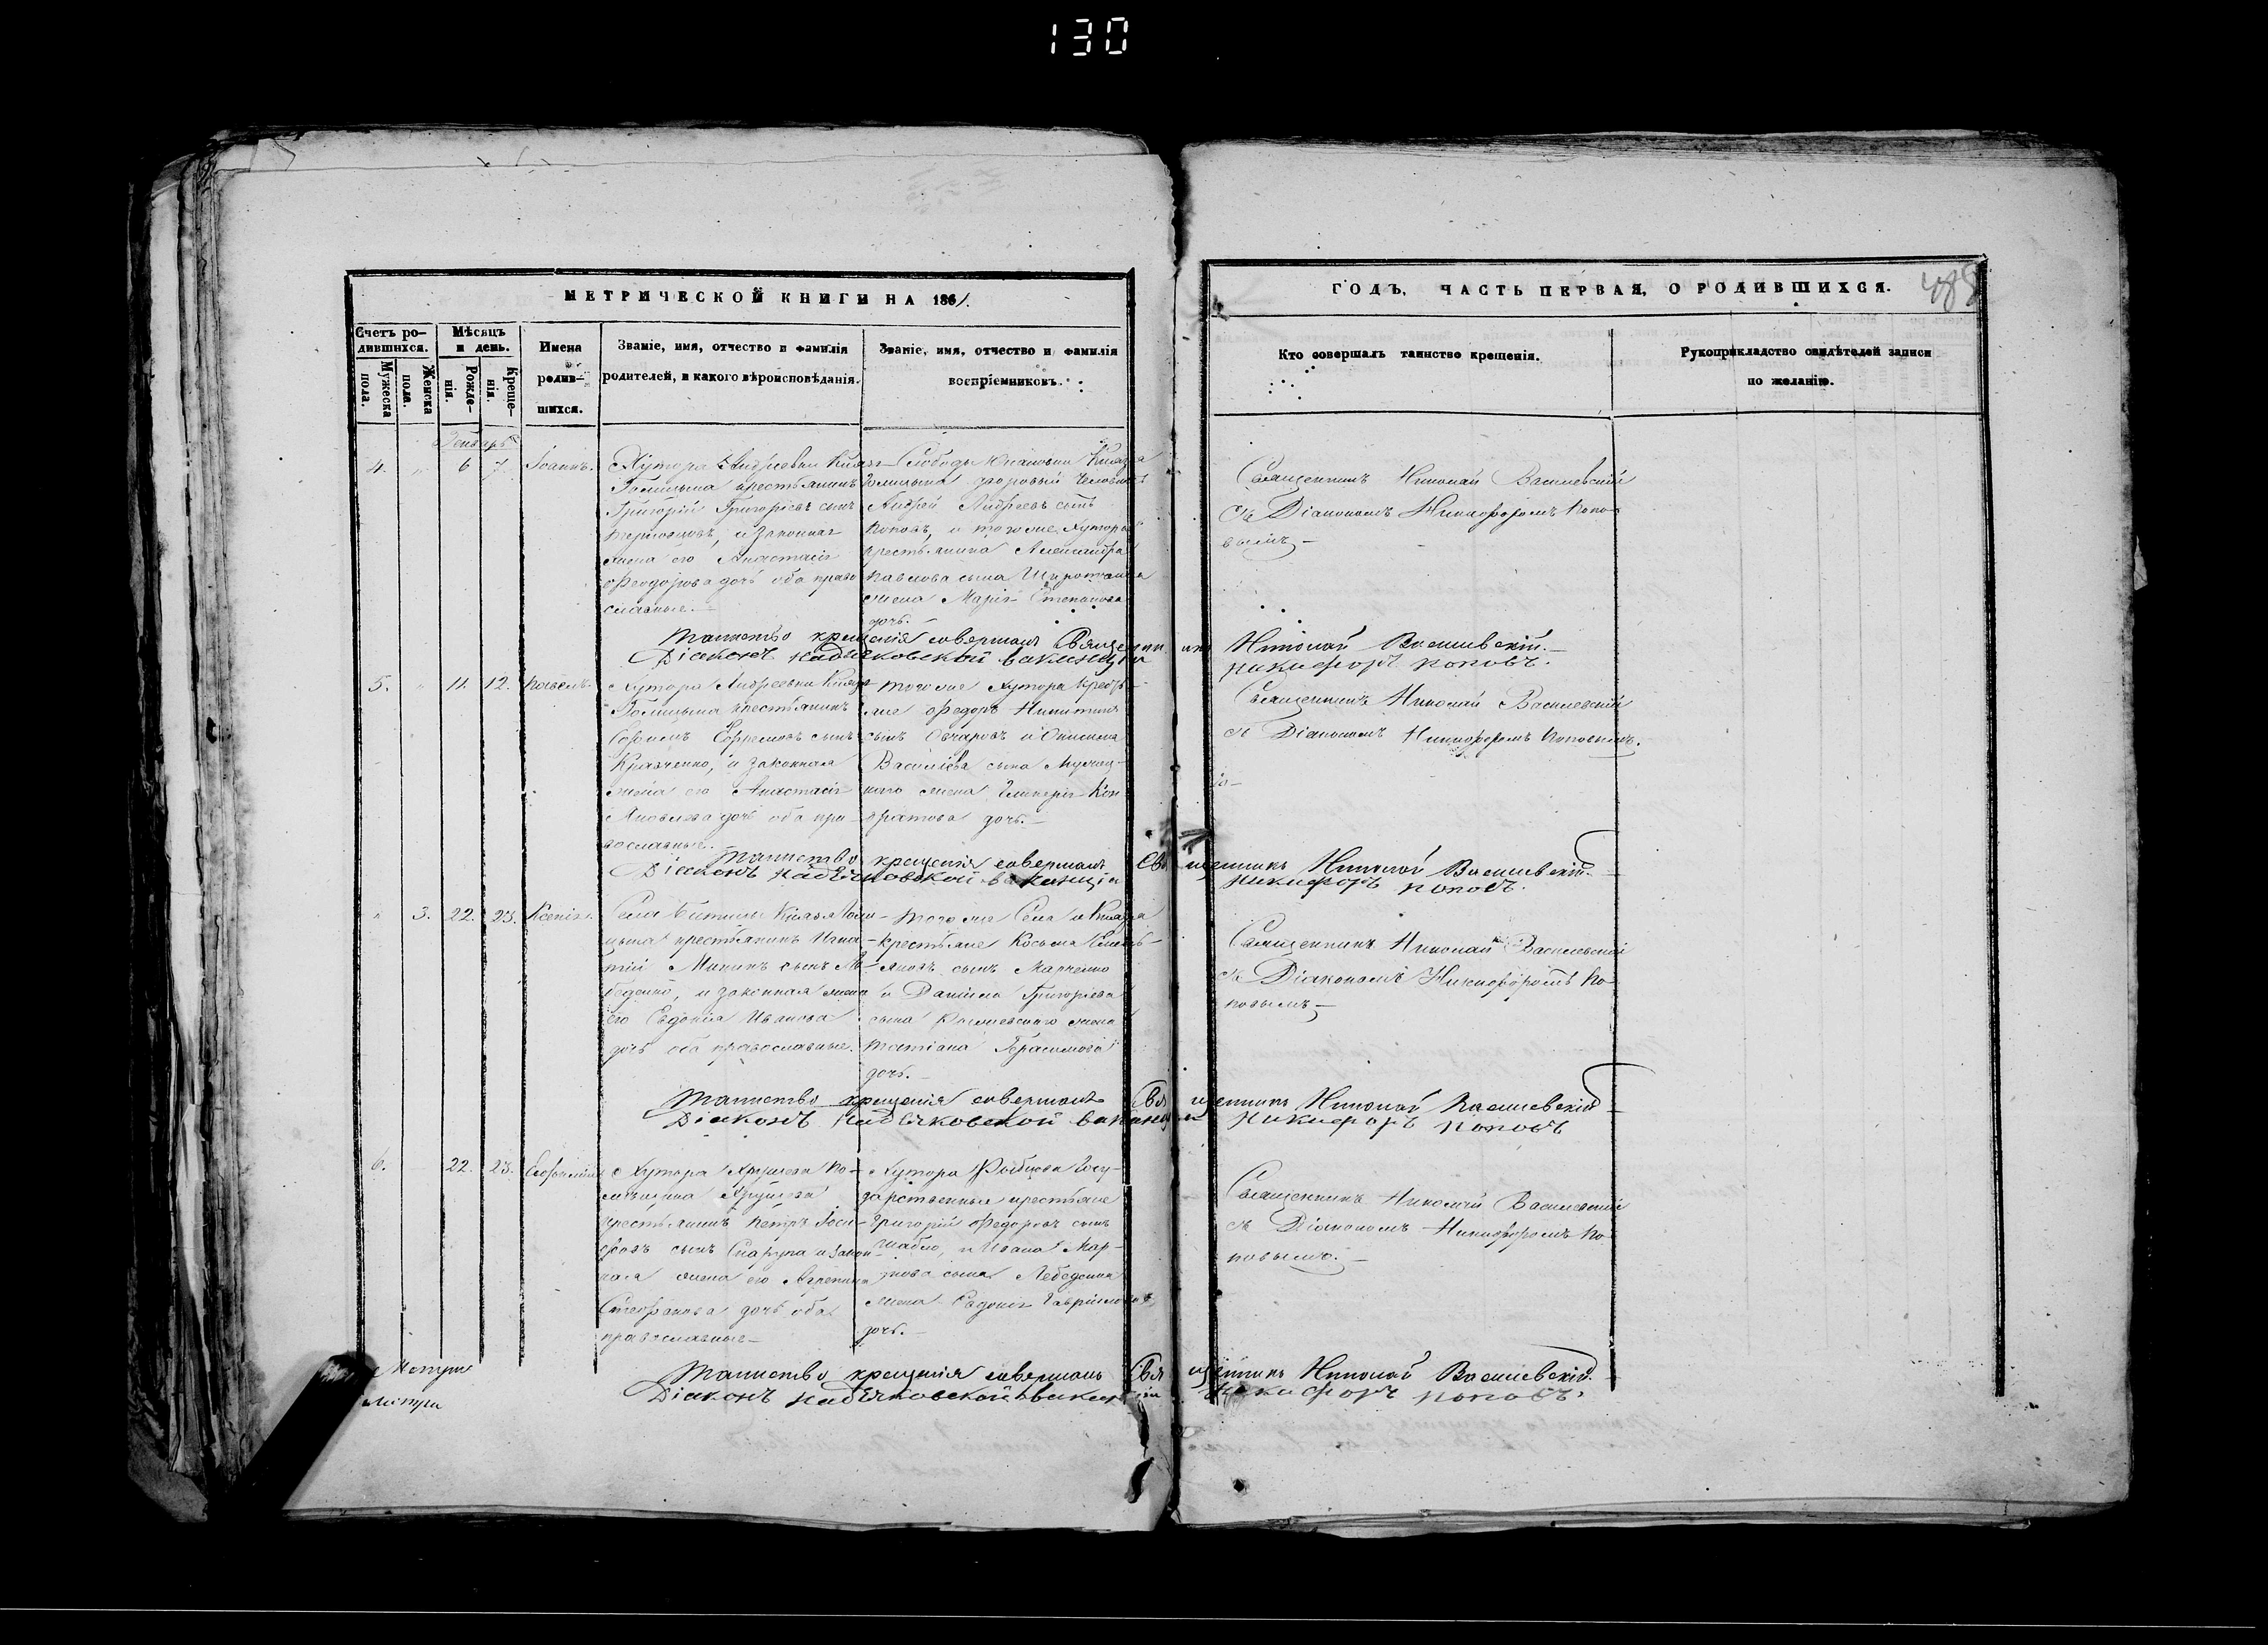 130
МЕТРИЧЕСКОЙ КНИГИ НА 1861.
ГОДЪ, ЧАСТЬ ПЕРВАЯ, О РОДИВШИХСЯ.
488
Счетъ ро-
дившихся.
Мужеска пола.
Женска пола.
Мѣсяцъ
и день.
Рожде-
нія.
Креще-
нія.
Имена
родив-
шихся.
Званіе, имя, отчество и фамилія
родителей, и какого вѣроисповѣданія.
Званіе, имя, отчество и фамилія
воспріемниковъ.
Кто совершалъ таинство крещенія.
Рукоприкладство свидѣтелей записи
по желанію.
Генварь
4. " 6 7. Іоаннъ.
Хутора Андреевки Князя
Голицына крестьянинъ
Григорій Григорьевъ сынъ
и законная
жена его Анастасія
Феодорова дочь оба право
славные.
Слободы Князя
Голицына дворовый человѣкъ
Андрей Андреевъ сынъ
Поповъ, и того же хутора
крестьянина Александра
Павлова сына
жена Марія Степанова
дочь.
Священникъ Николай Василевскій
съ Діакономъ Никифоромъ Попо-
вымъ
Таинство крещенія совершалъ Священникъ Николай Василевскій.
Діаконъ надъячковской вакансіи никифоръ поповъ.
5. " 11. 12. Павелъ.
Хутора Андреевки Князя
Голицына крестьянинъ
Ефремовъ сынъ
Кравченко, и законная
жена его Анастасія
Яковлева дочь оба пра-
вославные.
того же хутора кресть-
яне Федоръ Никитинъ
сынъ Овчаровъ и
Василіева сына
жена Гликерія Кон-
дратова дочь.
Священникъ Николай Василевскій
съ Діакономъ Никифоромъ Поповымъ.
Таинство крещенія совершалъ Священникъ Николай Василевскій.
Діаконъ надъячковской вакансіи никифоръ поповъ.
" 3. 22. 23. Ксенія.
Села Князя Голи-
цына крестьянинъ Игна-
тій сынъ Ле-
беденко, и законная жена
его Евдокія Иванова
дочь оба православные.
того же Села и Князя
крестьяне Косьма Емель-
яновъ сынъ Марченко
и Даниила Григорьева
сына жена
татіана Герасимова
дочь.
Священникъ Николай Василевскій
съ Діакономъ Никифоромъ По-
повымъ
Таинство крещенія совершалъ Священникъ Николай Василевскій
Діаконъ надъячковской вакансіи никифоръ поповъ
6. 22. 23.
Хутора Хрущева По-
мѣщика Хрущева
крестьянинъ Петръ Іоси-
фовъ сынъ и закон-
ная жена его Агрепина
Стефанова дочь оба
православные
Хутора Госу-
дарственные крестьяне
Григорій Федоровъ сынъ
и Ивана Мар-
кова сына Лебеденка
жена Евдокія Гавріилова
дочь.
Священникъ Николай Василевскій
съ Діакономъ Никифоромъ По
повымъ.
Таинство крещенія совершалъ Священникъ Николай Василевскій.
Діаконъ надъячковской вакансіи никифоръ поповъ.